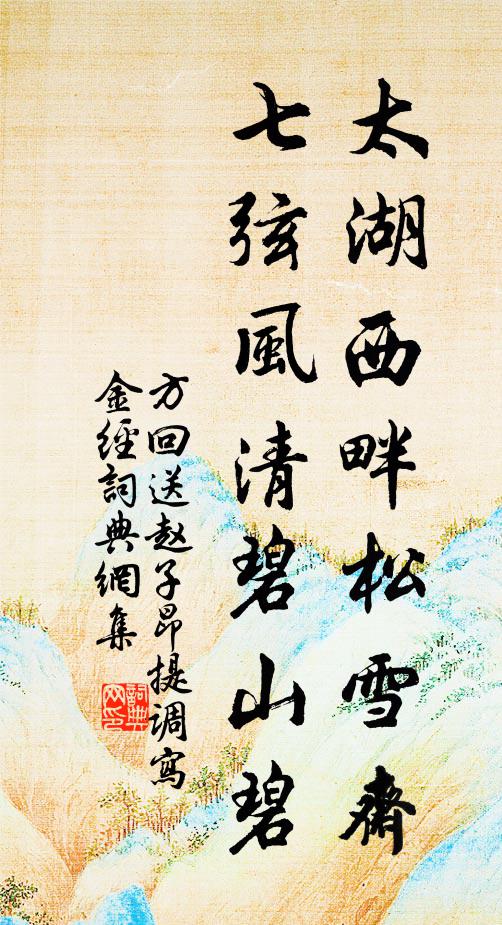 太湖西畔松雪齋
七弦風清碧山碧
方回送赵子昂提调寫
金經詞典網集
詞典网印